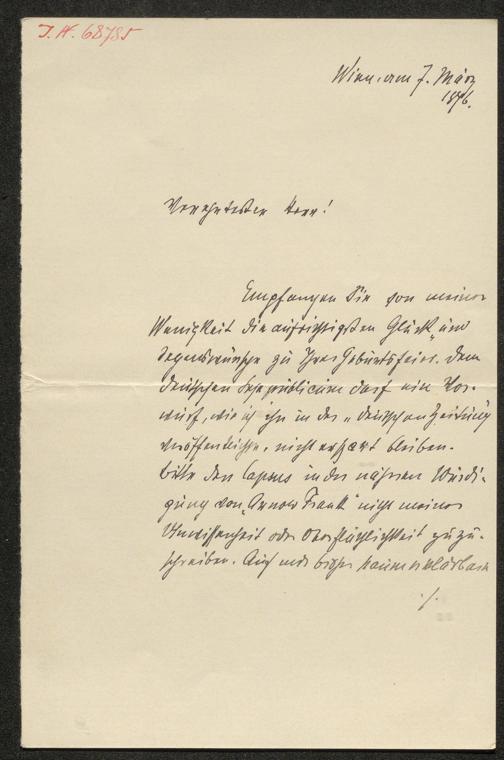 J. N. 68785
Wien, am 7. März
1876.
Verehrtester Herr!
Empfangen Sie von meiner
Wenigkeit die aufrichtigsten Glück- und
Segenswünsche zu Ihrer Geburtsfeier. Dem
deutschen Lesepublicum darf ein Vor-
wurf, wie ich ihn in der „deutschen Zeitung
veröffentlichte, nicht erspart bleiben.
Bitte den Lapsus in der näheren Würdi-
gung von „Arnold Frank“ nicht meiner
Unwissenheit oder Oberflächlichkeit zuzu-
schreiben. Auf kaum erklärbare
./.